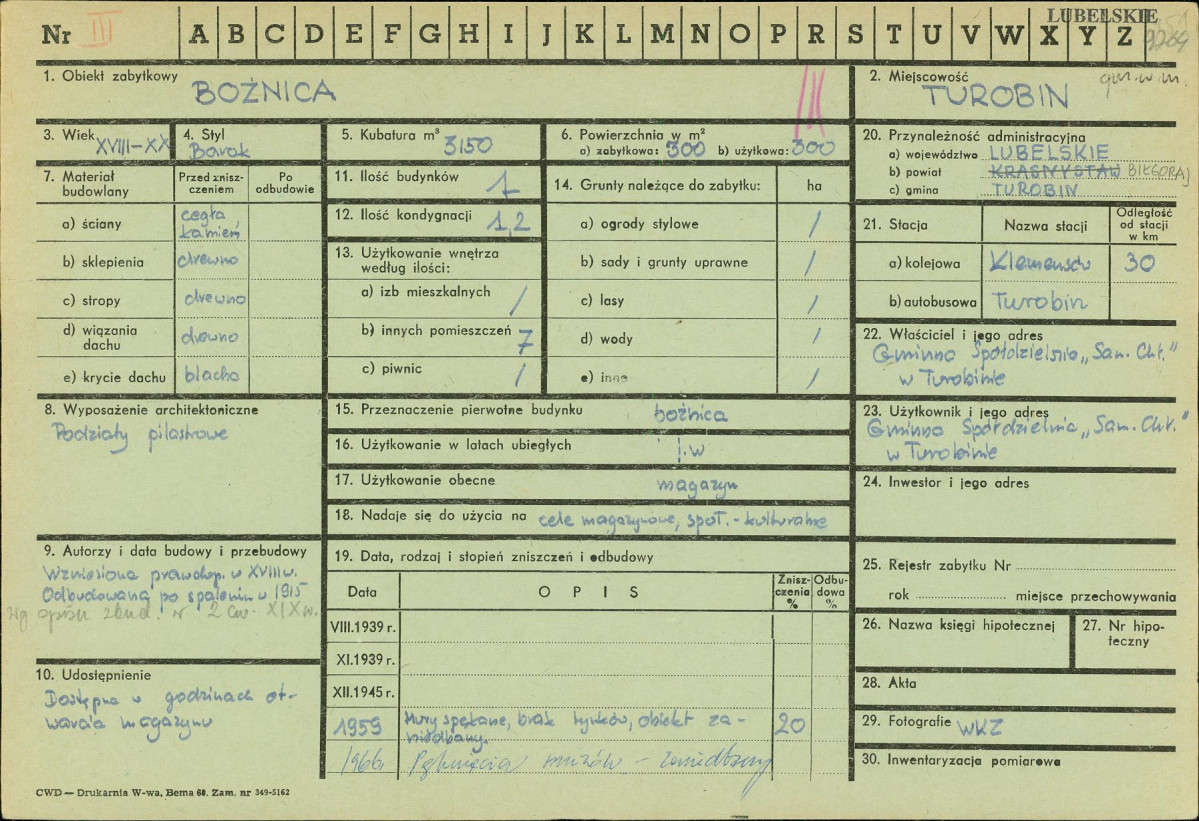 LUBELSKIE
Nr III A B C D E F G H I J K L M N O P R S T U V W X Y Z
1. Obiekt zabytkowy
BOŻNICA
III
2. Miejscowość
gm. w. m.
TUROBIN
3. Wiek
XVIII-XX
4. Styl
Barok
5. Kubatura m³ 3150
6. Powierzchnia w m²
a) zabytkowa: 300 b) użytkowa: 300
7. Materiał budowlany
Przed znisz-
czeniem
Po
odbudowie
a) ściany cegła, kamień
b) sklepienia drewno
c) stropy drewno
d) wiązania
dachu drewno
e) krycie dachu blacha
8. Wyposażenie architektoniczne
Podziały pilastrowe
9. Autorzy i data budowy i przebudowy
Wzniesiona prawdop. w XVIII w.
Odbudowana po spaleniu w 1915
wg opisu zbud. w 2 ćw. XIX w.
10. Udostępnienie
Dostępna w godzinach ot-
warcia magazynu
11. Ilość budynków 1
12. Ilość kondygnacji 1,2
13. Użytkowanie wnętrza
według ilości:
a) izb mieszkalnych /
b) innych pomieszczeń 7
c) piwnic /
14. Grunty należące do zabytku: ha
a) ogrody stylowe /
b) sady i grunty uprawne /
c) lasy /
d) wody /
e) inne /
15. Przeznaczenie pierwotne budynku bożnica
16. Użytkowanie w latach ubiegłych j.w
17. Użytkowanie obecne magazyn
18. Nadaje się do użycia na cele magazynowe, społ.-kulturalne
19. Data, rodzaj i stopień zniszczeń i odbudowy
Data
O P I S
Znisz-
czenia
%
Odbu-
dowa
%
VIII.1939 r.
XI.1939 r.
XII.1945 r.
1959 Mury spękane, brak tynków, obiekt za-
niedbany. 20
1966 Pęknięcia murów - zaniedbany
20. Przynależność administracyjna
a) województwo LUBELSKIE
b) powiat KRASNYSTAW BIŁGORAJ
c) gmina TUROBIN
21. Stacja
Nazwa stacji
Odległość
od stacji
w km
a) kolejowa Klemensów 30
b) autobusowa Turobin
22. Właściciel i jego adres
Gminna Spółdzielnia „Sam. Chł."
w Turobinie
23. Użytkownik i jego adres
Gminna Spółdzielnia „Sam. Chł."
w Turobinie
24. Inwestor i jego adres
25. Rejestr zabytku Nr
rok miejsce przechowywania
26. Nazwa księgi hipotecznej
27. Nr hipo-
teczny
28. Akta
29. Fotografie WKZ
30. Inwentaryzacja pomiarowa
CWD — Drukarnia W-wa, Bema 60. Zam. nr 349-5162